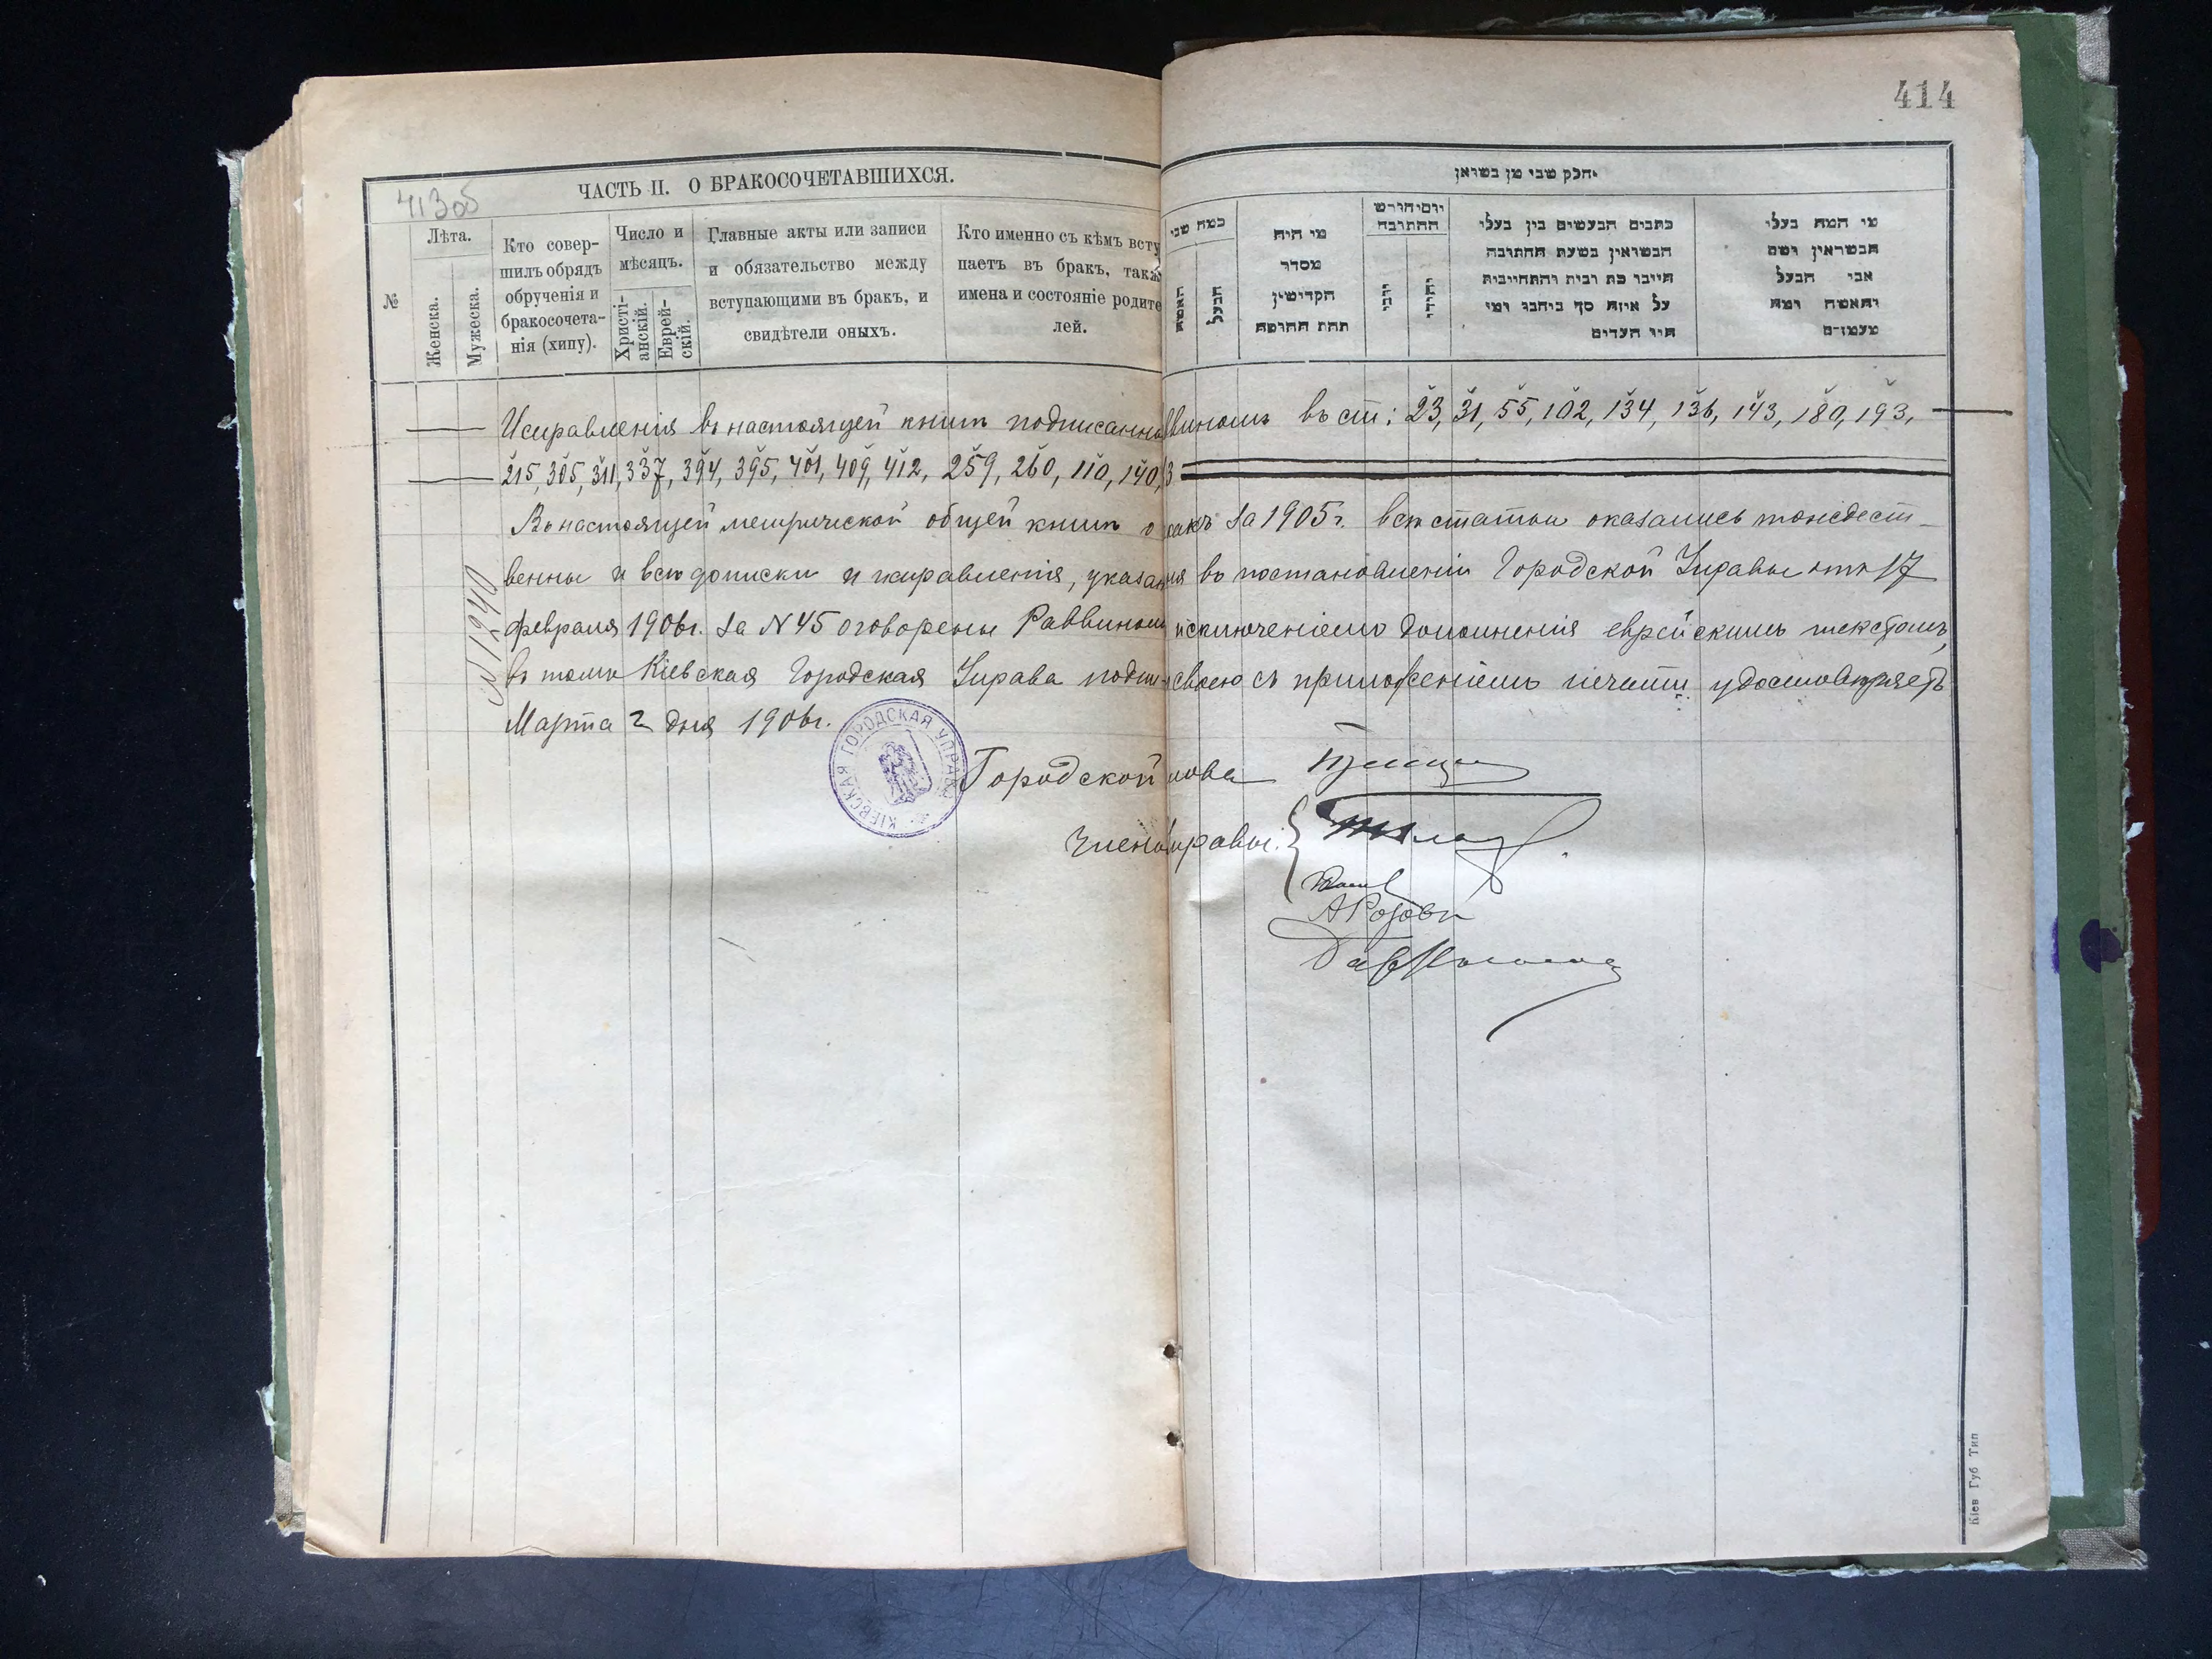 414
413 об
ЧАСТЬ II. О БРАКОСОЧЕТАВШИХСЯ.
חלק שני מן בשואן
№
Лѣта.
Женска.
Мужеска.
Кто совер-
шилъ обрядъ
обрученія и
бракосочета-
нія (хипу).
Число и
мѣсяцъ.
Христі-
анскій.
Еврей-
скій.
Главные акты или записи
и обязательство между
вступающими въ бракъ, и
свидѣтели оныхъ.
Кто именно съ кѣмъ всту
паетъ въ бракъ, также
имена и состояніе родите
лей.
כמה שני
האשה
הבעל
מי היה
מסדר
הקדישין
תחת החופה
יום יחורש
החתונה
יהודי
כתבים הנעשים בין בעלי
הנשואין בשעת החתונה
על איזה סך ביתבו ומי
היו העדים
מי המה בעלי
הנשואין ושם
אבי הבעל
והאשה ומה
Исправленія въ настоящей книгѣ подписанны ввиномъ въ ст: 23, 31, 55, 102, 134, 136, 143, 180, 193,
215, 305, 311, 337, 394, 395, 401, 409, 412, 259, 260, 110, 140, 3
Въ настоящей метрической общей книгѣ о акъ за 1905 г. всѣ статьи оказались тождест-
венны и всѣ дописки и исправленія, указан ія въ постановленіи Городской Управы отъ 17
февраля 1906 г. за N 45 оговорены Раввиномъ исключеніемъ дополненія еврейскимъ текстомъ,
въ томъ Кіевская Городская Управа подпи своею съ приложеніемъ печати удостовѣряетъ
Марта 2 дня 1906 г.
N 1240
КІЕВСКАЯ ГОРОДСКАЯ УПРАВА
Городской лова
Члены правы:
А Розовъ
Кіев Губ Тип